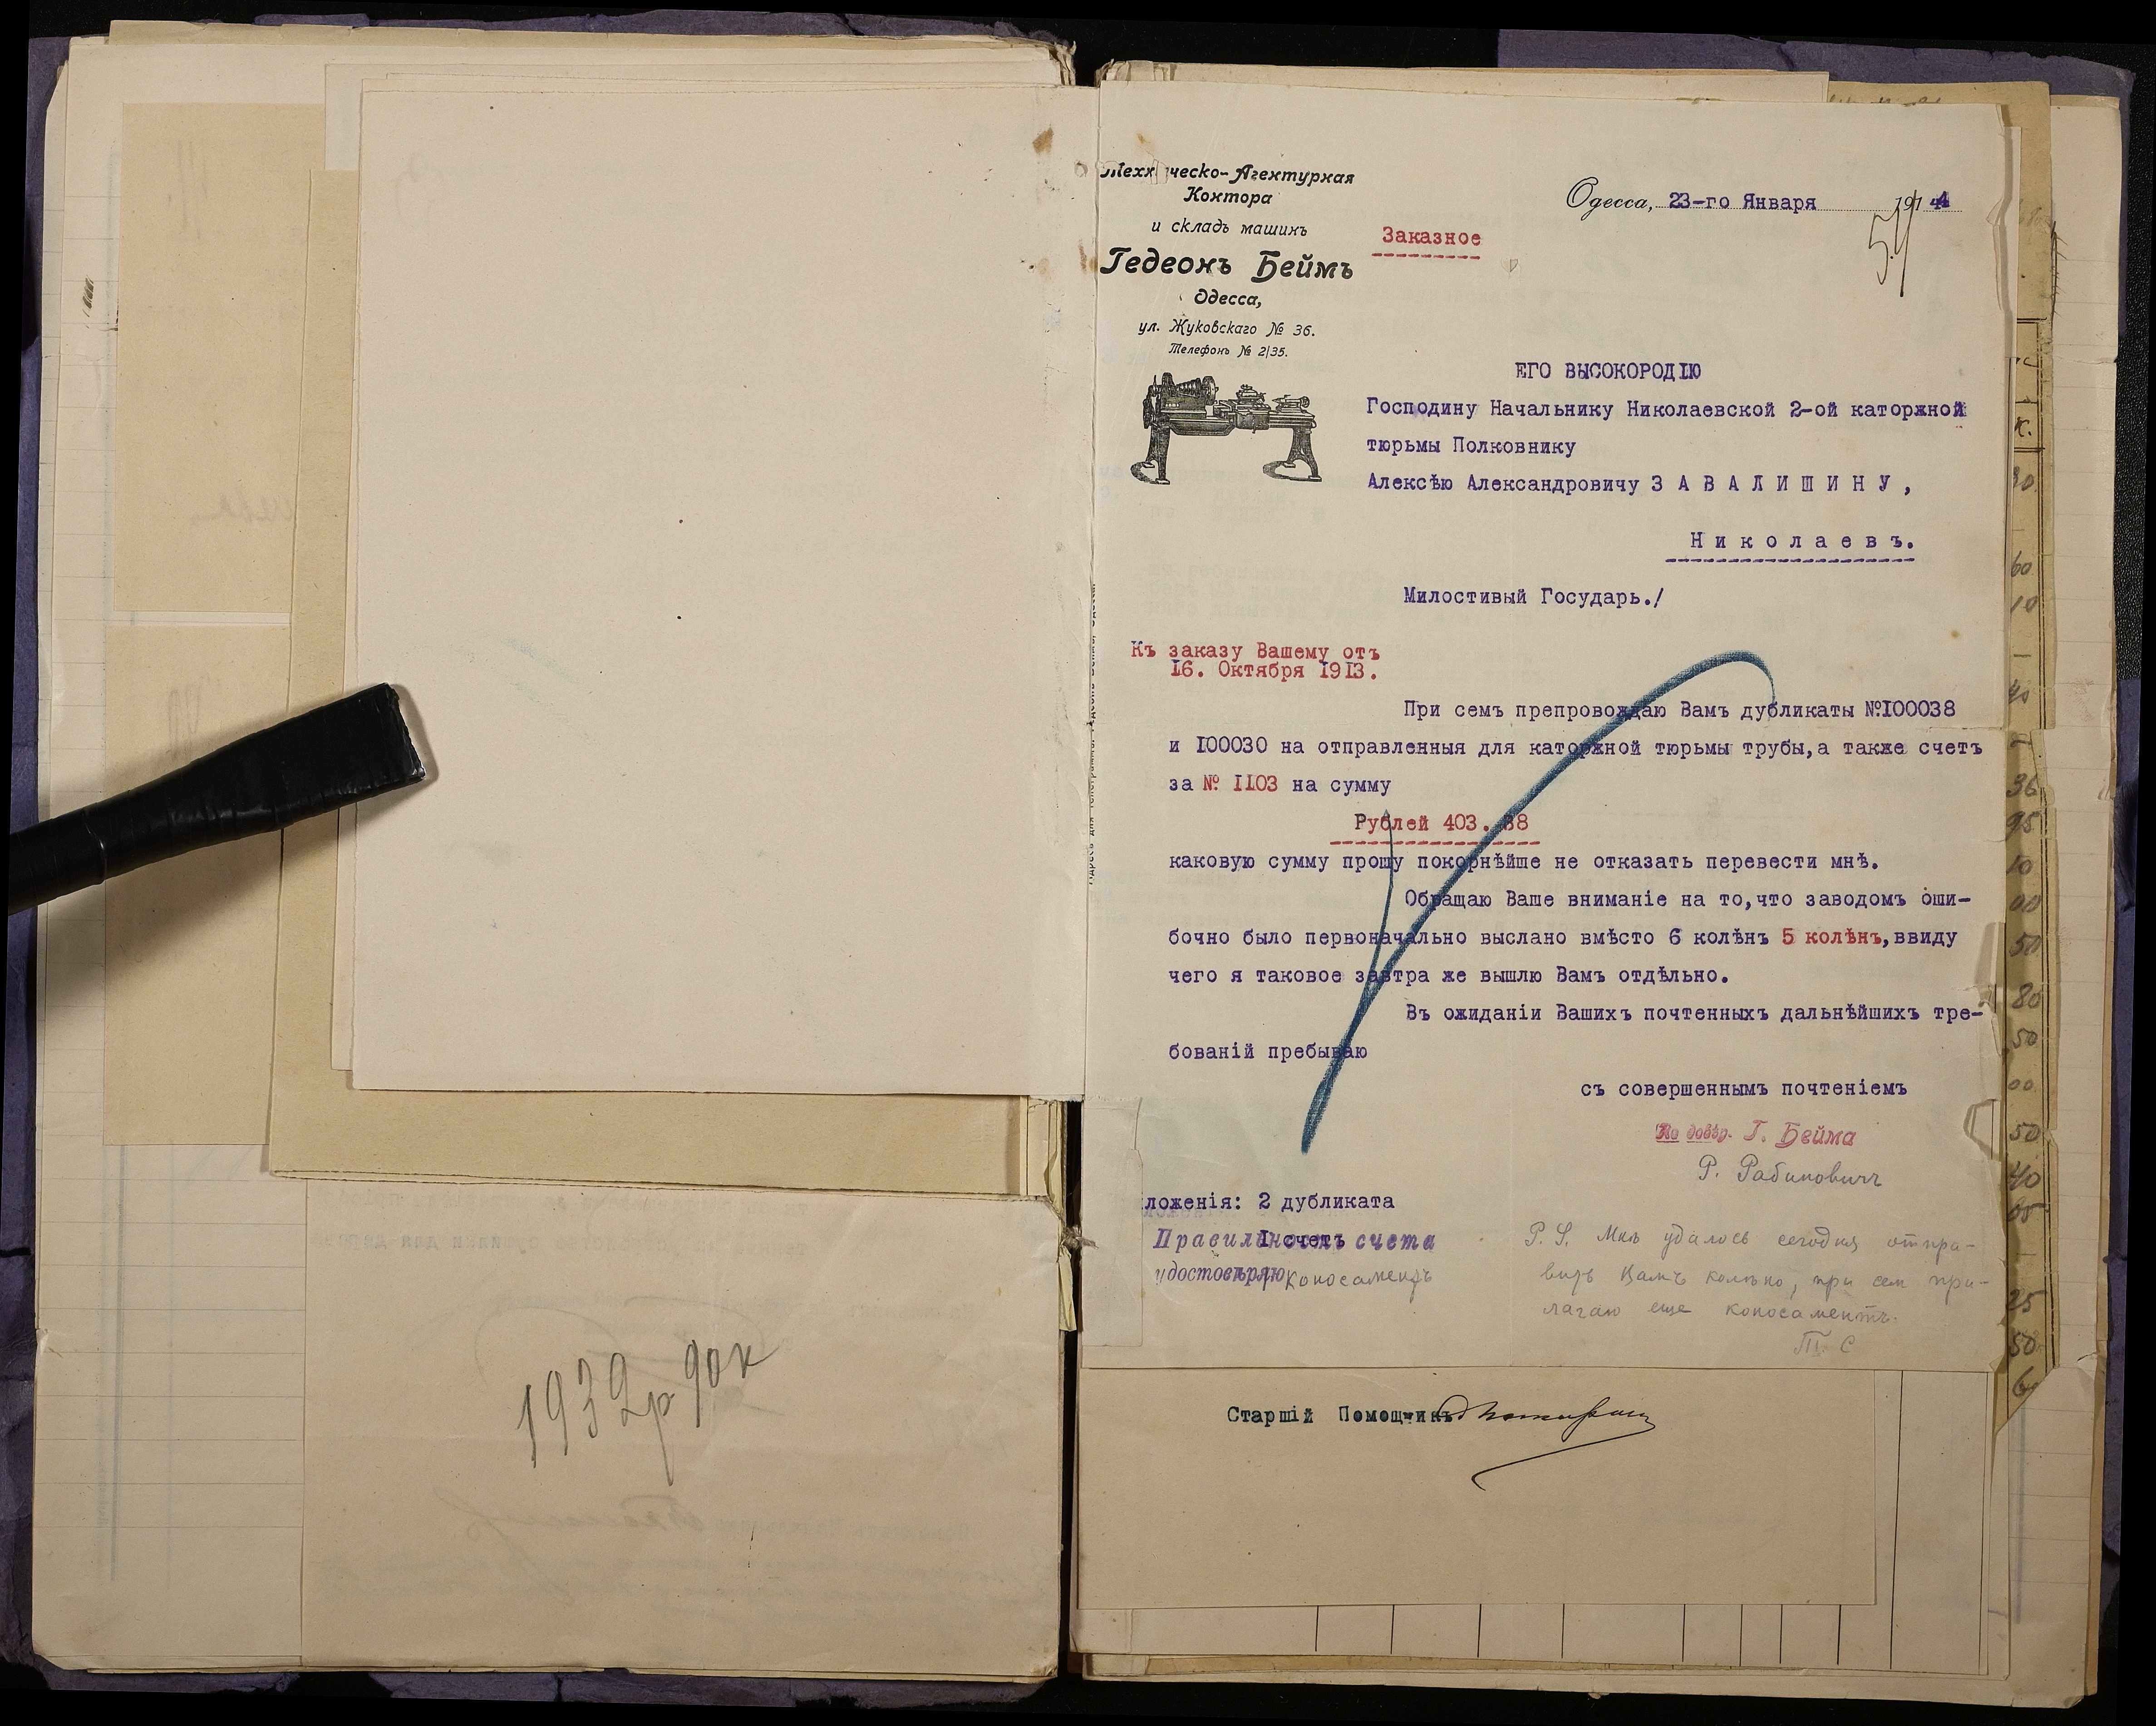 Техническо-Агентурная
Контора
и складъ машинъ
Гедеонъ Беймъ
Одесса,
ул. Жуковскаго № 36.
Телефонъ № 2|35.
Одесса, 23-го Января 1914
54
Заказное
ЕГО ВЫСОКОРОДІЮ
Господину Начальнику Николаевской 2-ой каторжной
тюрьмы Полковнику
Алексѣю Александровичу З А В А Л И Ш И Н У ,
Н и к о л а е в ъ.
Милостивый Государь./
Къ заказу Вашему отъ
16. Октября 1913.
При семъ препровождаю Вамъ дубликаты №100038
и 100030 на отправленныя для каторжной тюрьмы трубы,а также счетъ
за № 1103 на сумму
Рублей 403.88
каковую сумму прошу покорнѣйше не отказать перевести мнѣ.
Обращаю Ваше вниманіе на то,что заводомъ оши-
бочно было первоначально выслано вмѣсто 6 колѣнъ 5 колѣнъ,ввиду
чего я таковое завтра же вышлю Вамъ отдѣльно.
Въ ожиданіи Вашихъ почтенныхъ дальнѣйшихъ тре-
бованій пребываю
съ совершеннымъ почтеніемъ
По довѣр. Г. Бейма
Р. Рабиновичъ
ложенія: 2 дубликата
1 счетъ
Правильность счета
удостовѣряю
коносаментъ
P. S. Мнѣ удалось сегодня отпра-
вить Вамъ колѣно, при сем при-
лагаю еще коносаментъ.
Старшій Помощникъ
1932р 90к